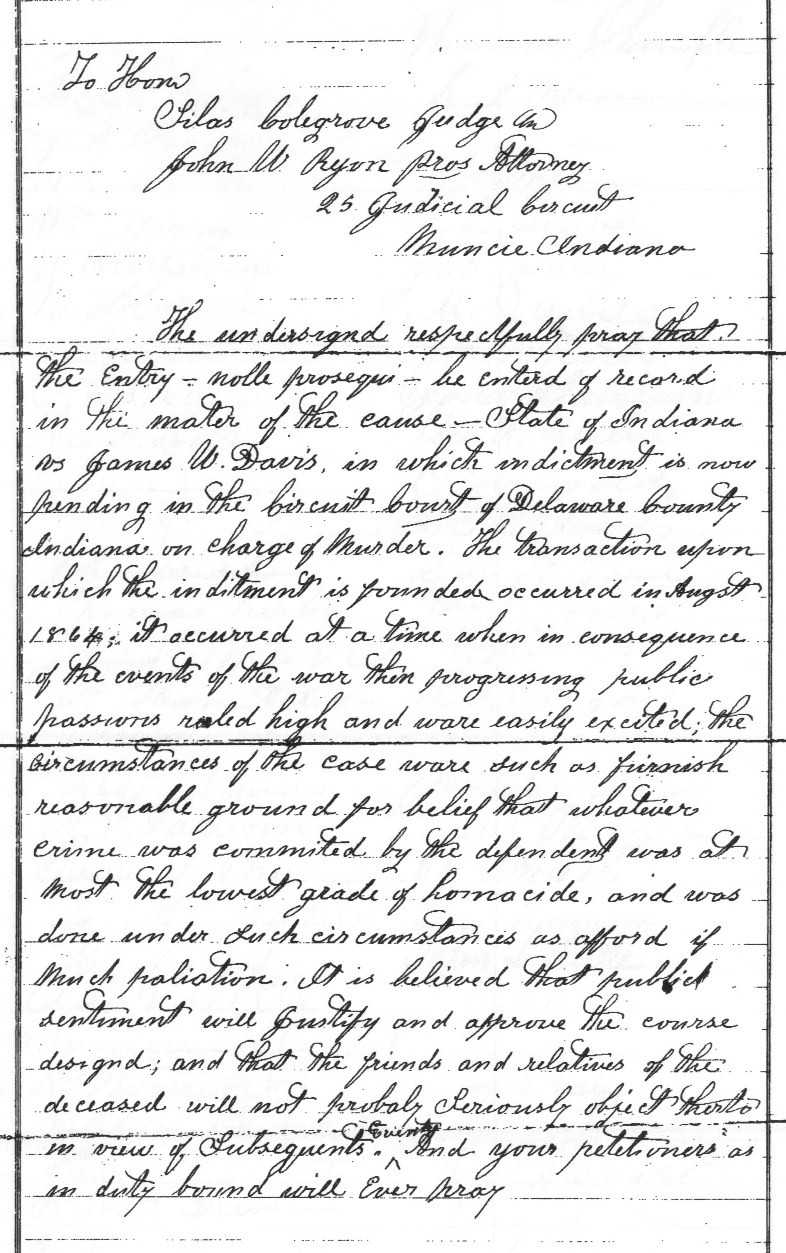 To Hon
Silas Colegrove Judge an
John W Ryon pros Attorney
25 Judicial Circuit
Muncie Indiana
The undersignd respectfully pray that
the Entry - nolle prosequi - be enterd of record
in the mater of the cause - State of Indiana
vs James W. Davis, in which indictment is now
pending in the Circuit Court of Delaware County
Indiana on charge of Murder. The transaction upon
which the inditment is founded occurred in Augst
1864; it occurred at a time when in consequence
of the events of the war then progressing public
passions ruled high and ware easily excited; the
circumstances of the case ware such as furnish
reasonable ground for belief that whatever
crime was commited by the dependent was at
most the lowest grade of homacide, and was
done under such circumstances as afford if
much paliation. It is believed that public
sentiment will justify and approve the course
designd; and that the friends and relatives of the
deceased will not probaly seriously object therto
in view of Subsequents Events. And your petetioners as
in duty bound will Ever pray